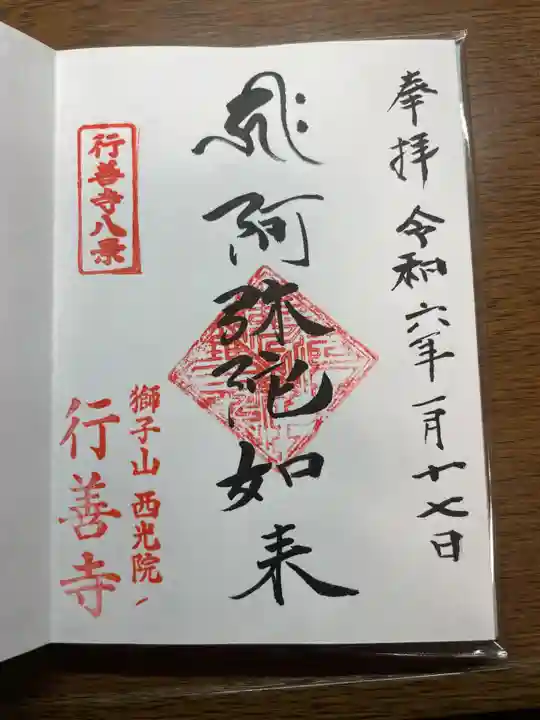 奉拝 令和六年一月十七日
𑖮𑖿𑖨𑖱𑖾
阿弥陀如来
行善寺八景
獅子山 西光院
行善寺